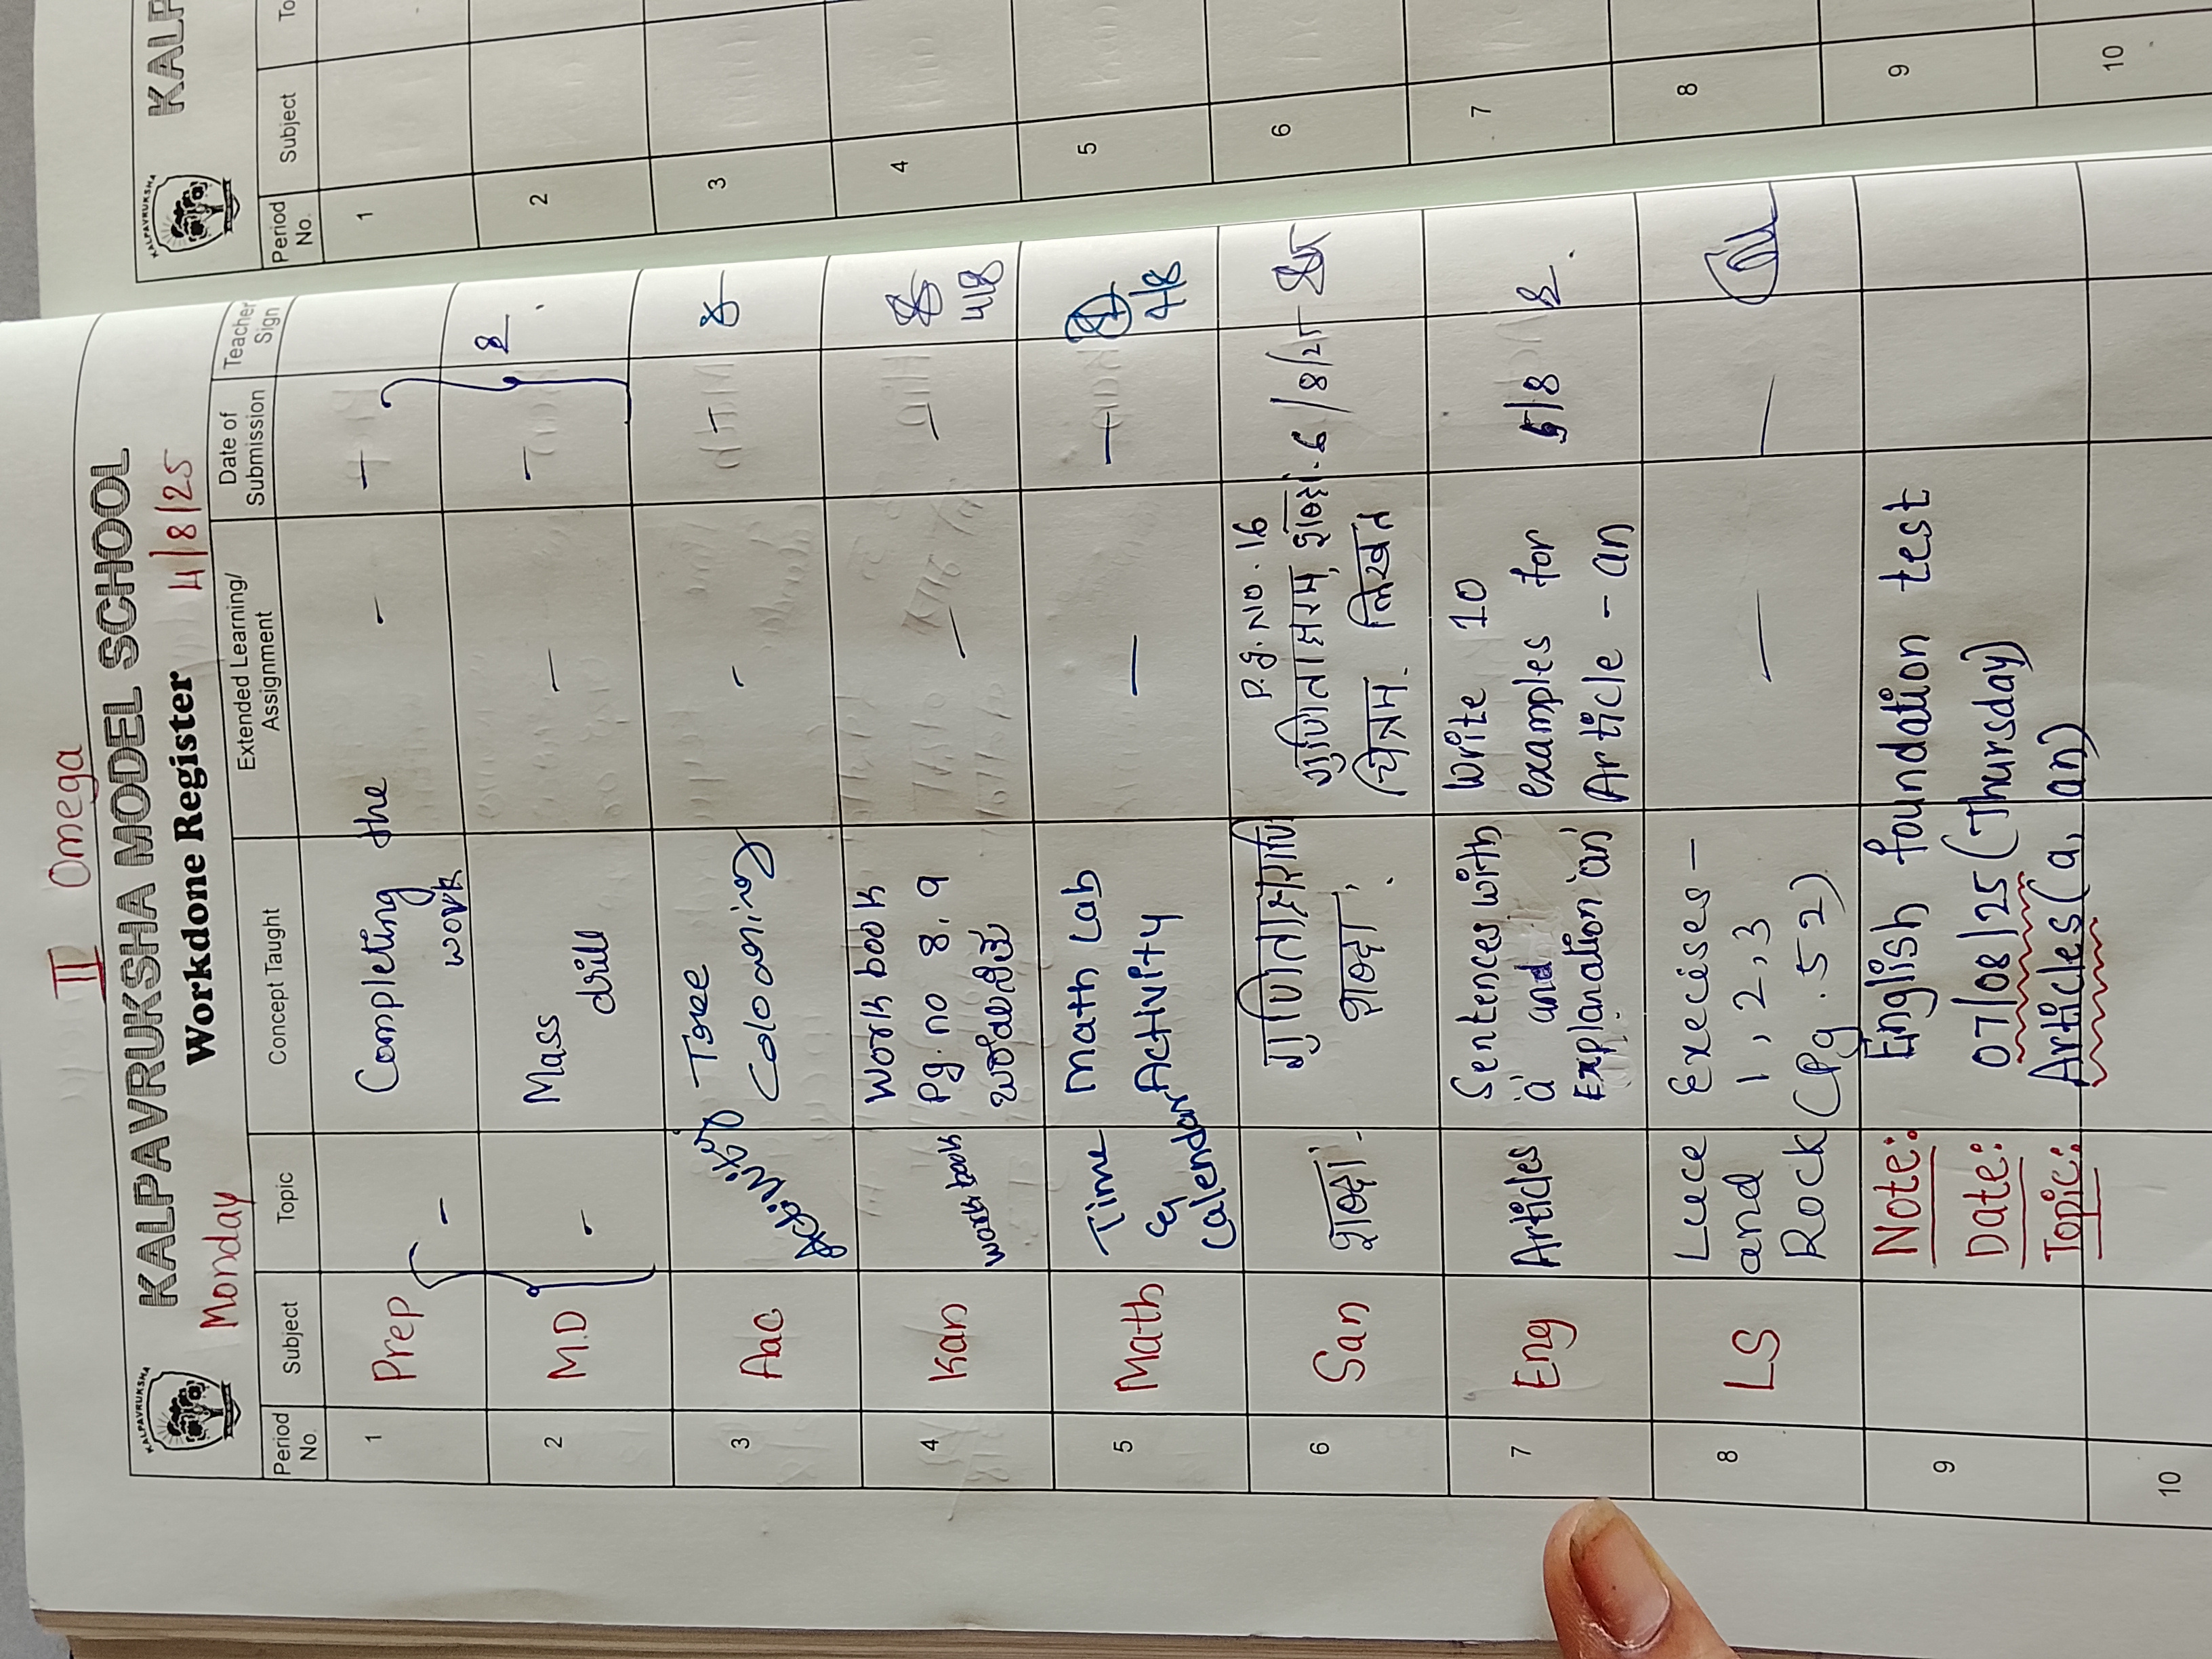 II Omega
KALPAVRUKSHA
KALPAVRUKSHA MODEL SCHOOL
Monday Workdone Register 4/8/25
Period No. Subject Topic Concept Taught Extended Learning/ Assignment Date of Submission Teacher Sign
1 Prep - Completing the - -
work
2 M.D - Mass - -
drill
3 Aac Activity Tree - -
Colouring
4 Kan work book Work book — -
Pg. no 8, 9 4/8
5 Math Time Math Lab — —
& Activity 4/8
Calendar
6 San शब्दाः P.g. No. 16 6/8/25
शब्दाः चित्रम् लिखत
7 Eng Articles Sentences with Write 10 5/8
'a' and examples for
Explanation 'an' Article - an
8 LS Luce Execises — — —
and 1, 2, 3
Rock (Pg. 52)
9 Note: English foundation test
Date: 07/08/25 (Thursday)
Topic: Articles (a, an)
10
KALPAVRUKSHA
KALP
Period No. Subject To
1
2
3
4
5
6
7
8
9
10